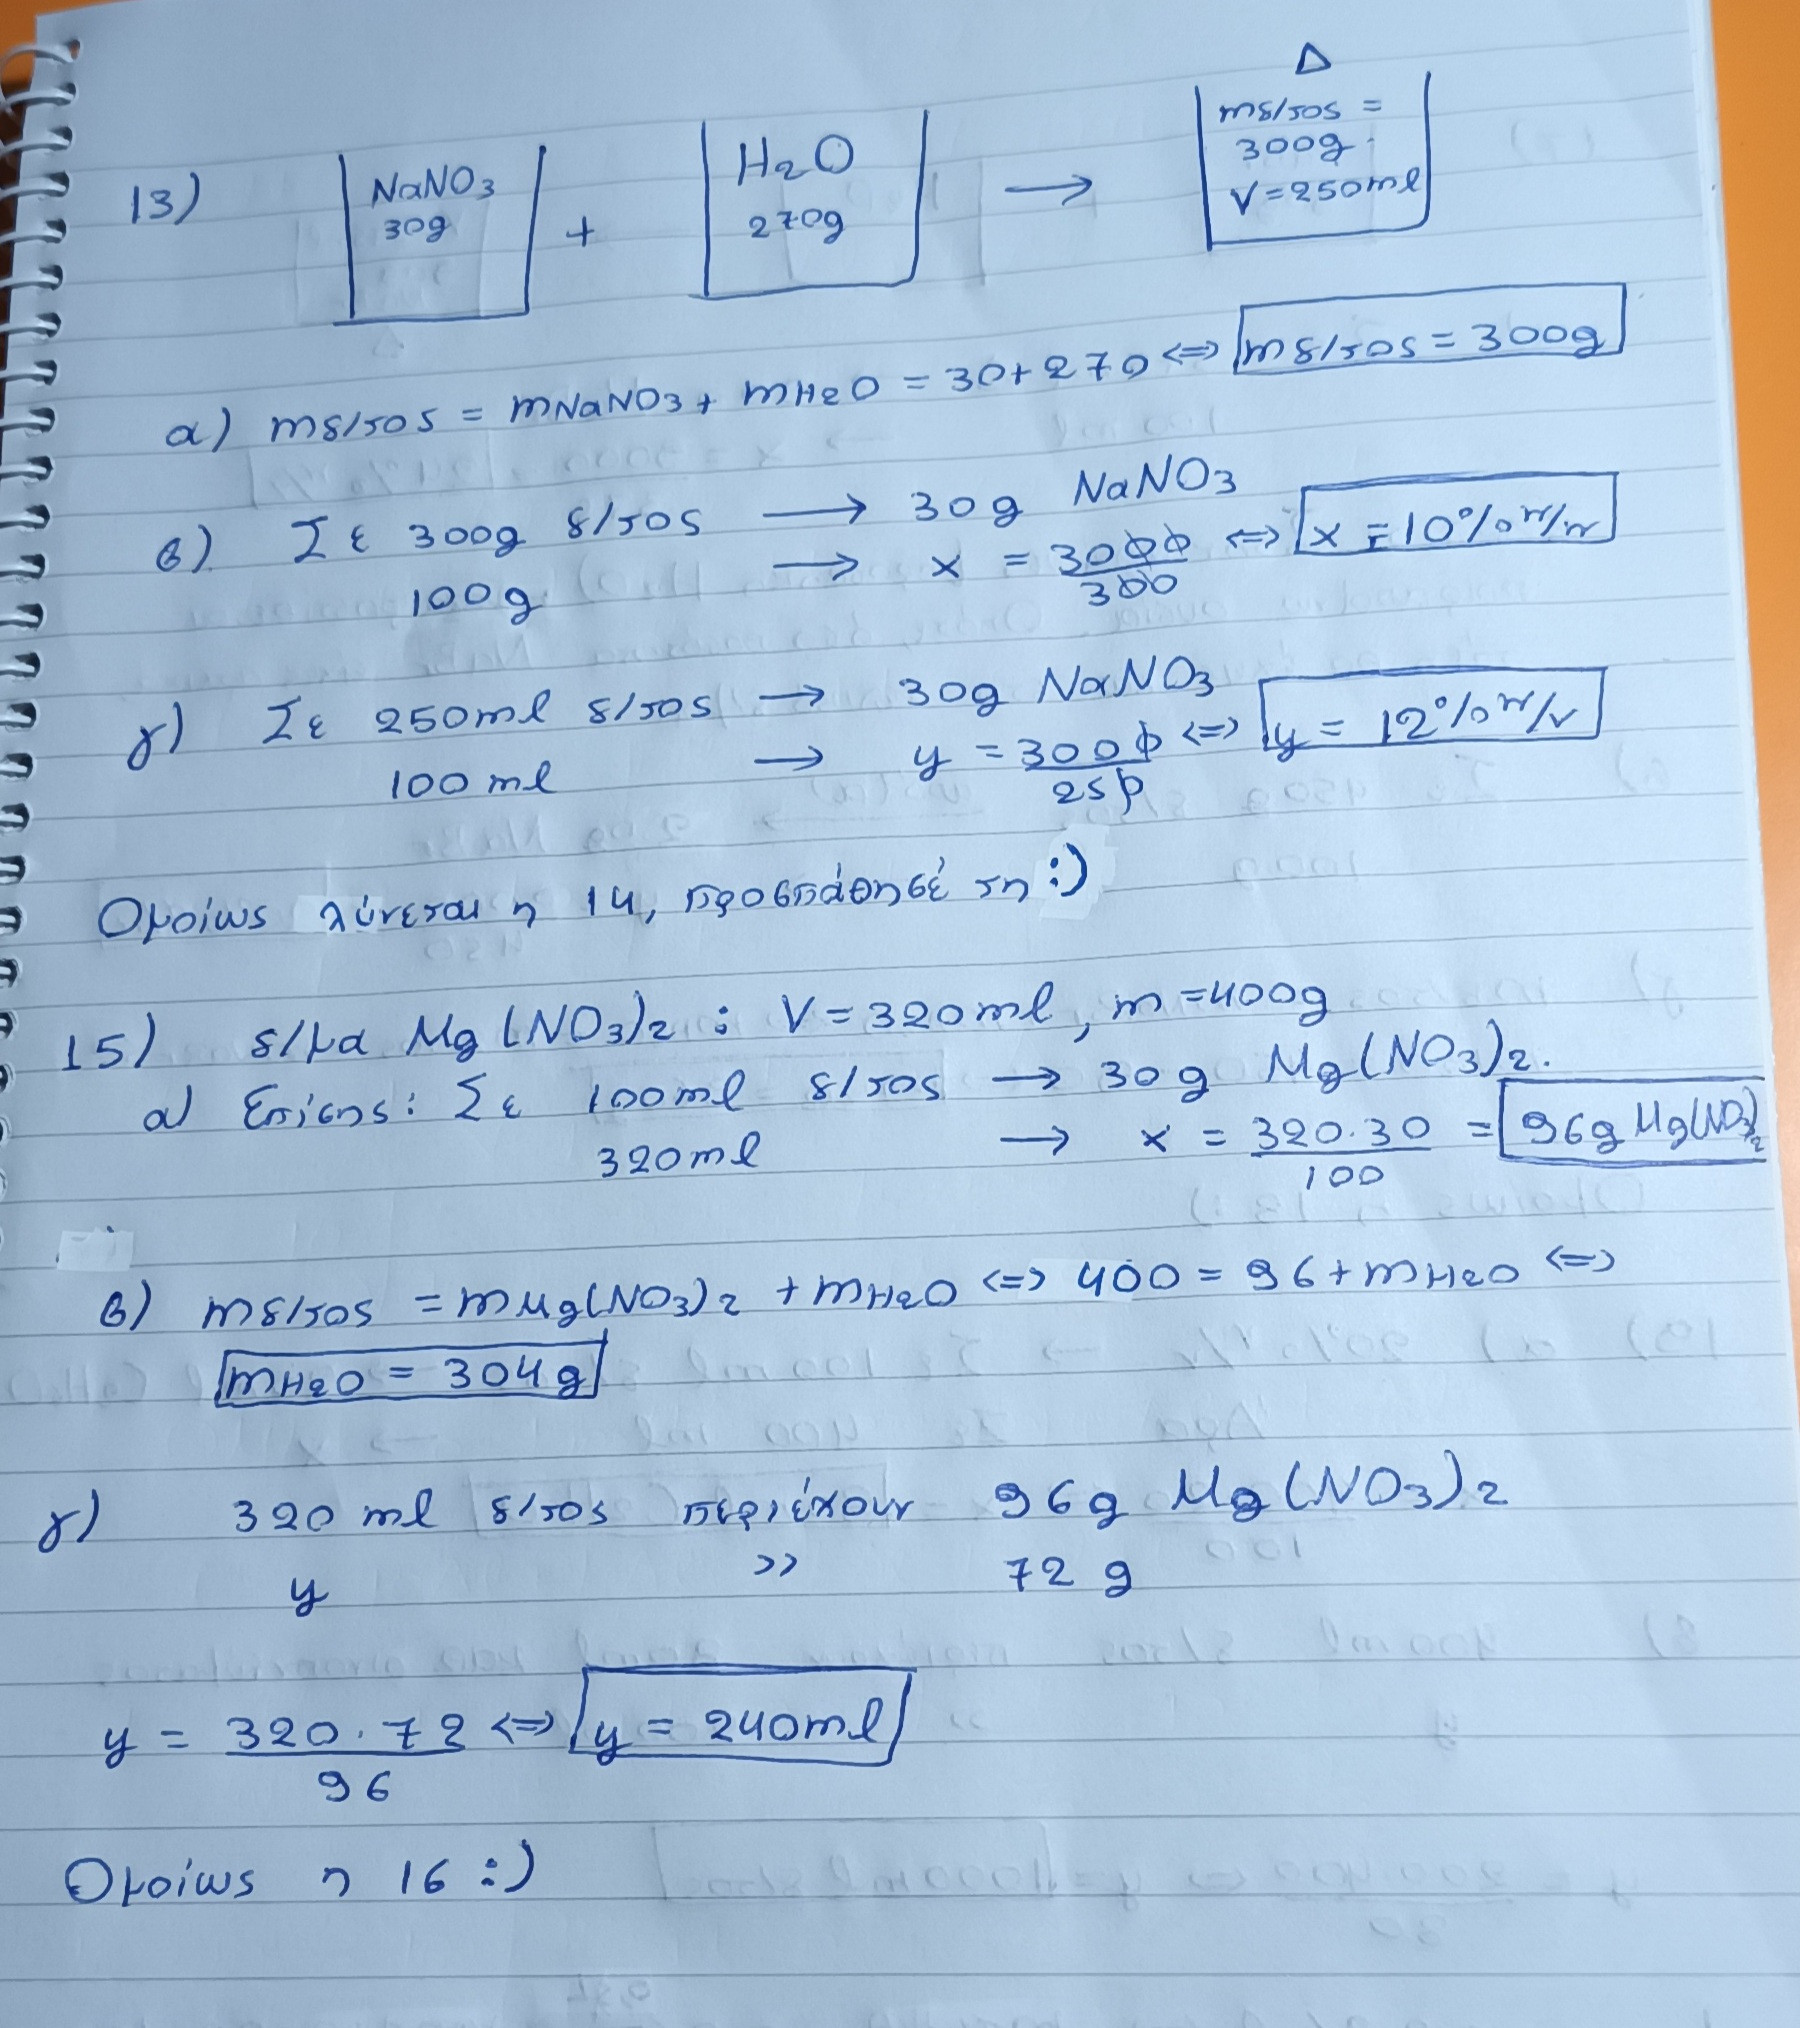 13)
NaNO3
30g
+
H2O
270g
→
Δ
mδ/τος =
300g
V=250ml
α) mδ/τος = mNaNO3 + mH2O = 30+270 <=> mδ/τος = 300g
β) Σε 300g δ/τος → 30g NaNO3
100g → x = 3000/300 <=> x = 10% w/w
γ) Σε 250ml δ/τος → 30g NaNO3
100 ml → y = 3000/250 <=> y = 12% w/v
Ομοίως λύνεται η 14, προσπάθησέ τη :)
15) δ/μα Mg(NO3)2 : V=320ml, m=400g
α) Επίσης: Σε 100ml δ/τος → 30g Mg(NO3)2.
320ml → x = 320·30/100 = 96g Mg(NO3)2
β) mδ/τος = mMg(NO3)2 + mH2O <=> 400 = 96+mH2O <=>
mH2O = 304g
γ) 320 ml δ/τος περιέχουν 96g Mg(NO3)2
y >> 72 g
y = 320·72/96 <=> y = 240ml
Ομοίως η 16 :)